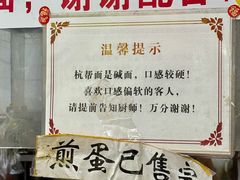 温馨提示
杭帮面是碱面，口感较硬！
喜欢口感偏软的客人，
请提前告知厨师！万分谢谢！
煎蛋已售